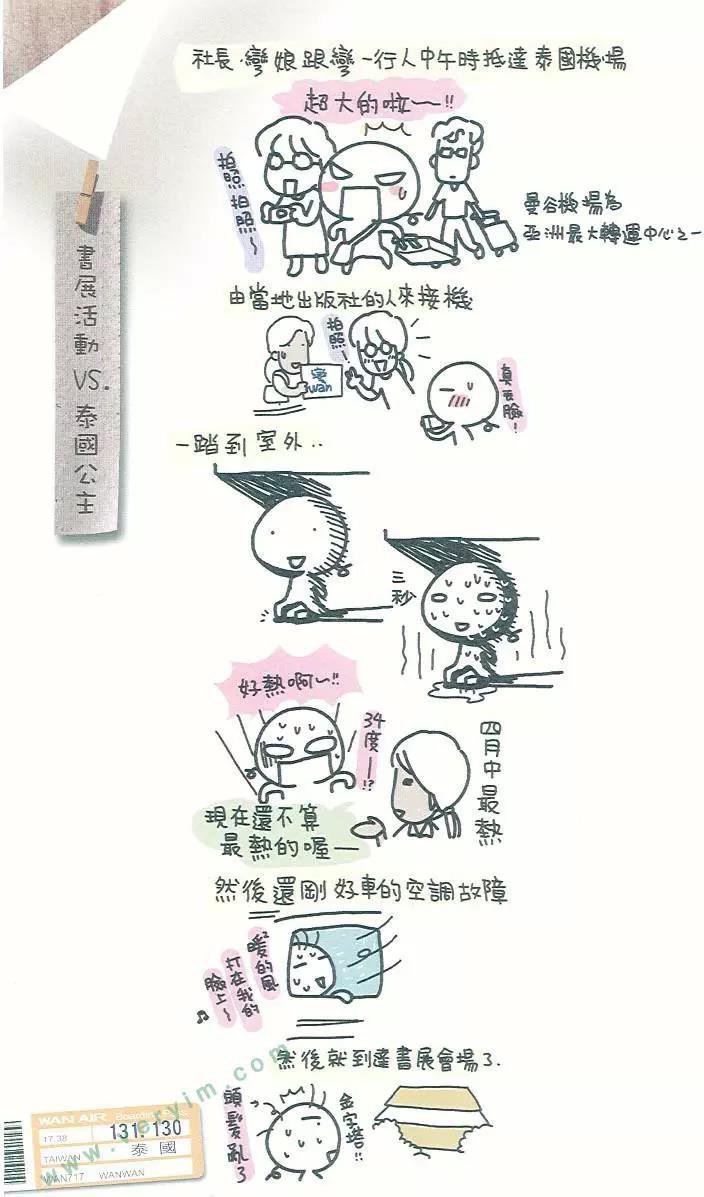 社長、彎娘跟彎一行人中午時抵達泰國機場
超大的啦～!!
拍照拍照～
曼谷機場為
亞洲最大轉運中心之一
書展活動 VS. 泰國公主
由當地出版社的人來接機
拍照～
彎
wan
真丟臉！
一踏到室外..
三秒
好熱啊～!!
34度—!?
四月中最熱
現在還不算
最熱的喔—
然後還剛好車的空調故障
暖暖的風
打在我的
臉上～♪
然後就到達書展會場了.
頭髮亂了
金字塔!!
WAN AIR Boarding Pass
17:38
131.130
TAIWAN
泰國
WAN717 WANWAN
www.veryim.com